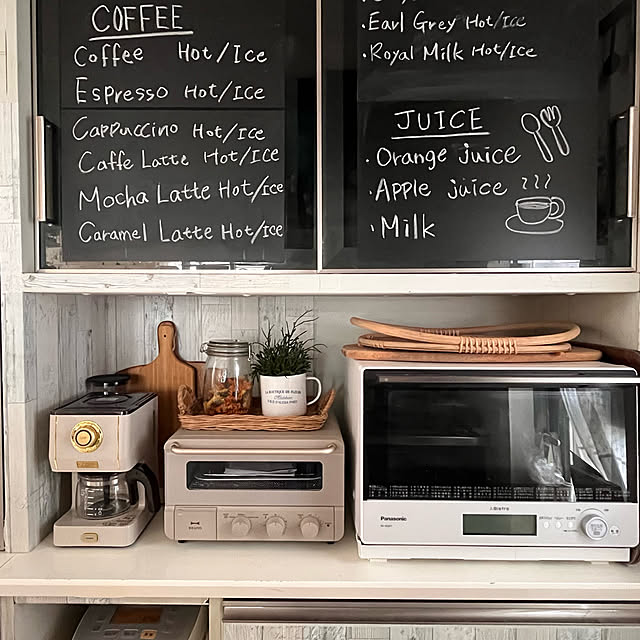 COFFEE
Coffee Hot/Ice
Espresso Hot/Ice
Cappuccino Hot/Ice
Caffe Latte Hot/Ice
Mocha Latte Hot/Ice
Caramel Latte Hot/Ice
・Earl Grey Hot/Ice
・Royal Milk Hot/Ice
JUICE
・Orange juice
・Apple juice
・Milk
BRUNO
Panasonic
Bistro